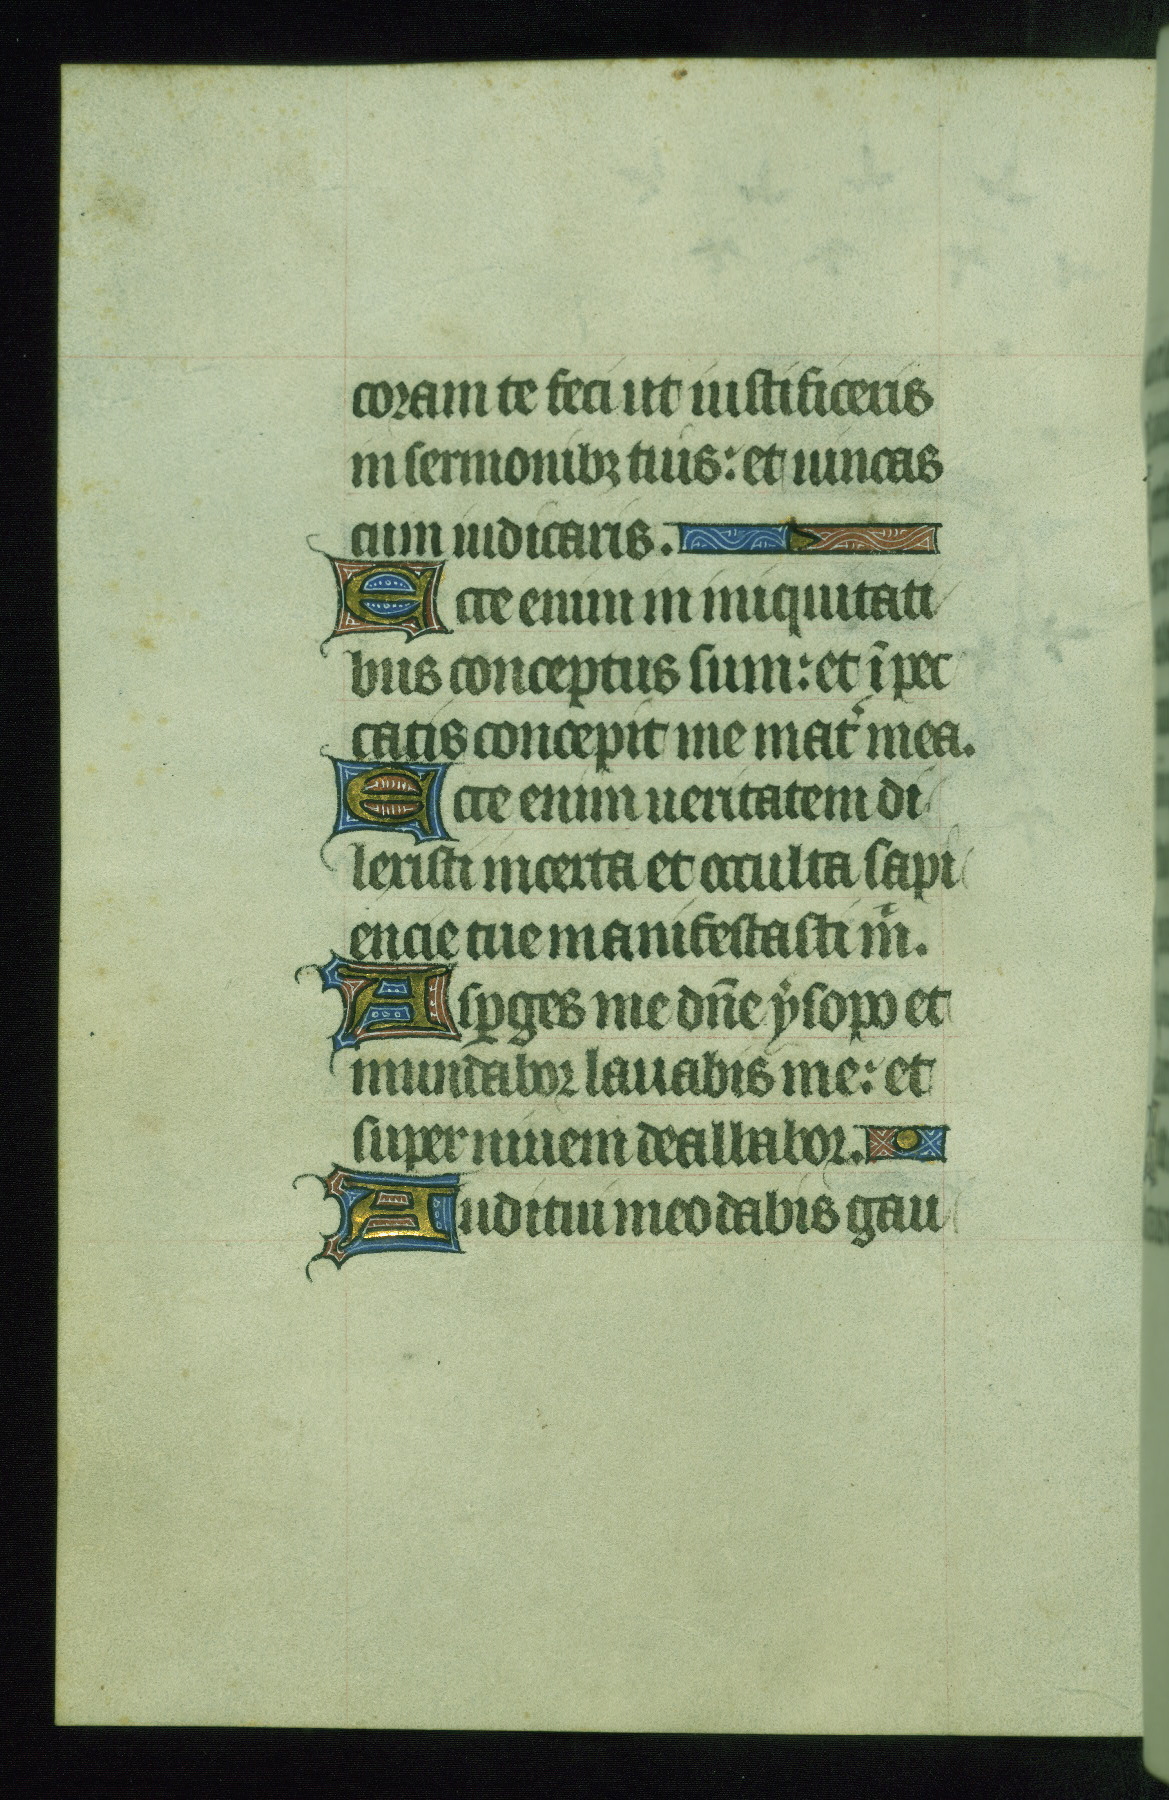 coram te feci ut iustificeris
in sermonibꝫ tuis: et uincas
cum iudicaris.
Ecce enim in iniquitati
bus conceptus sum: et ī pec
catis concepit me mat̉ mea.
Ecce enim ueritatem di
lexisti incerta et occulta sapi
encie tue manifestasti m̄.
Asꝑges me dn̄e ysopo et
mundabor lauabis me: et
super niuem dealbabor.
Auditui meo dabis gau